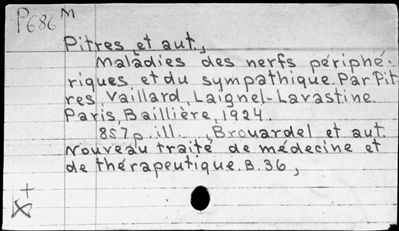 P686 M
Pitres et aut.,
Maladies des nerfs périphé-
riques et du sympathique. Par Pit
res, Vaillard, Laignel-Lavastine.
Paris, Baillière, 1924.
857p. ill. , Brouardel et aut.
Nouveau traité de médecine et
de thérapeutique. B. 36,